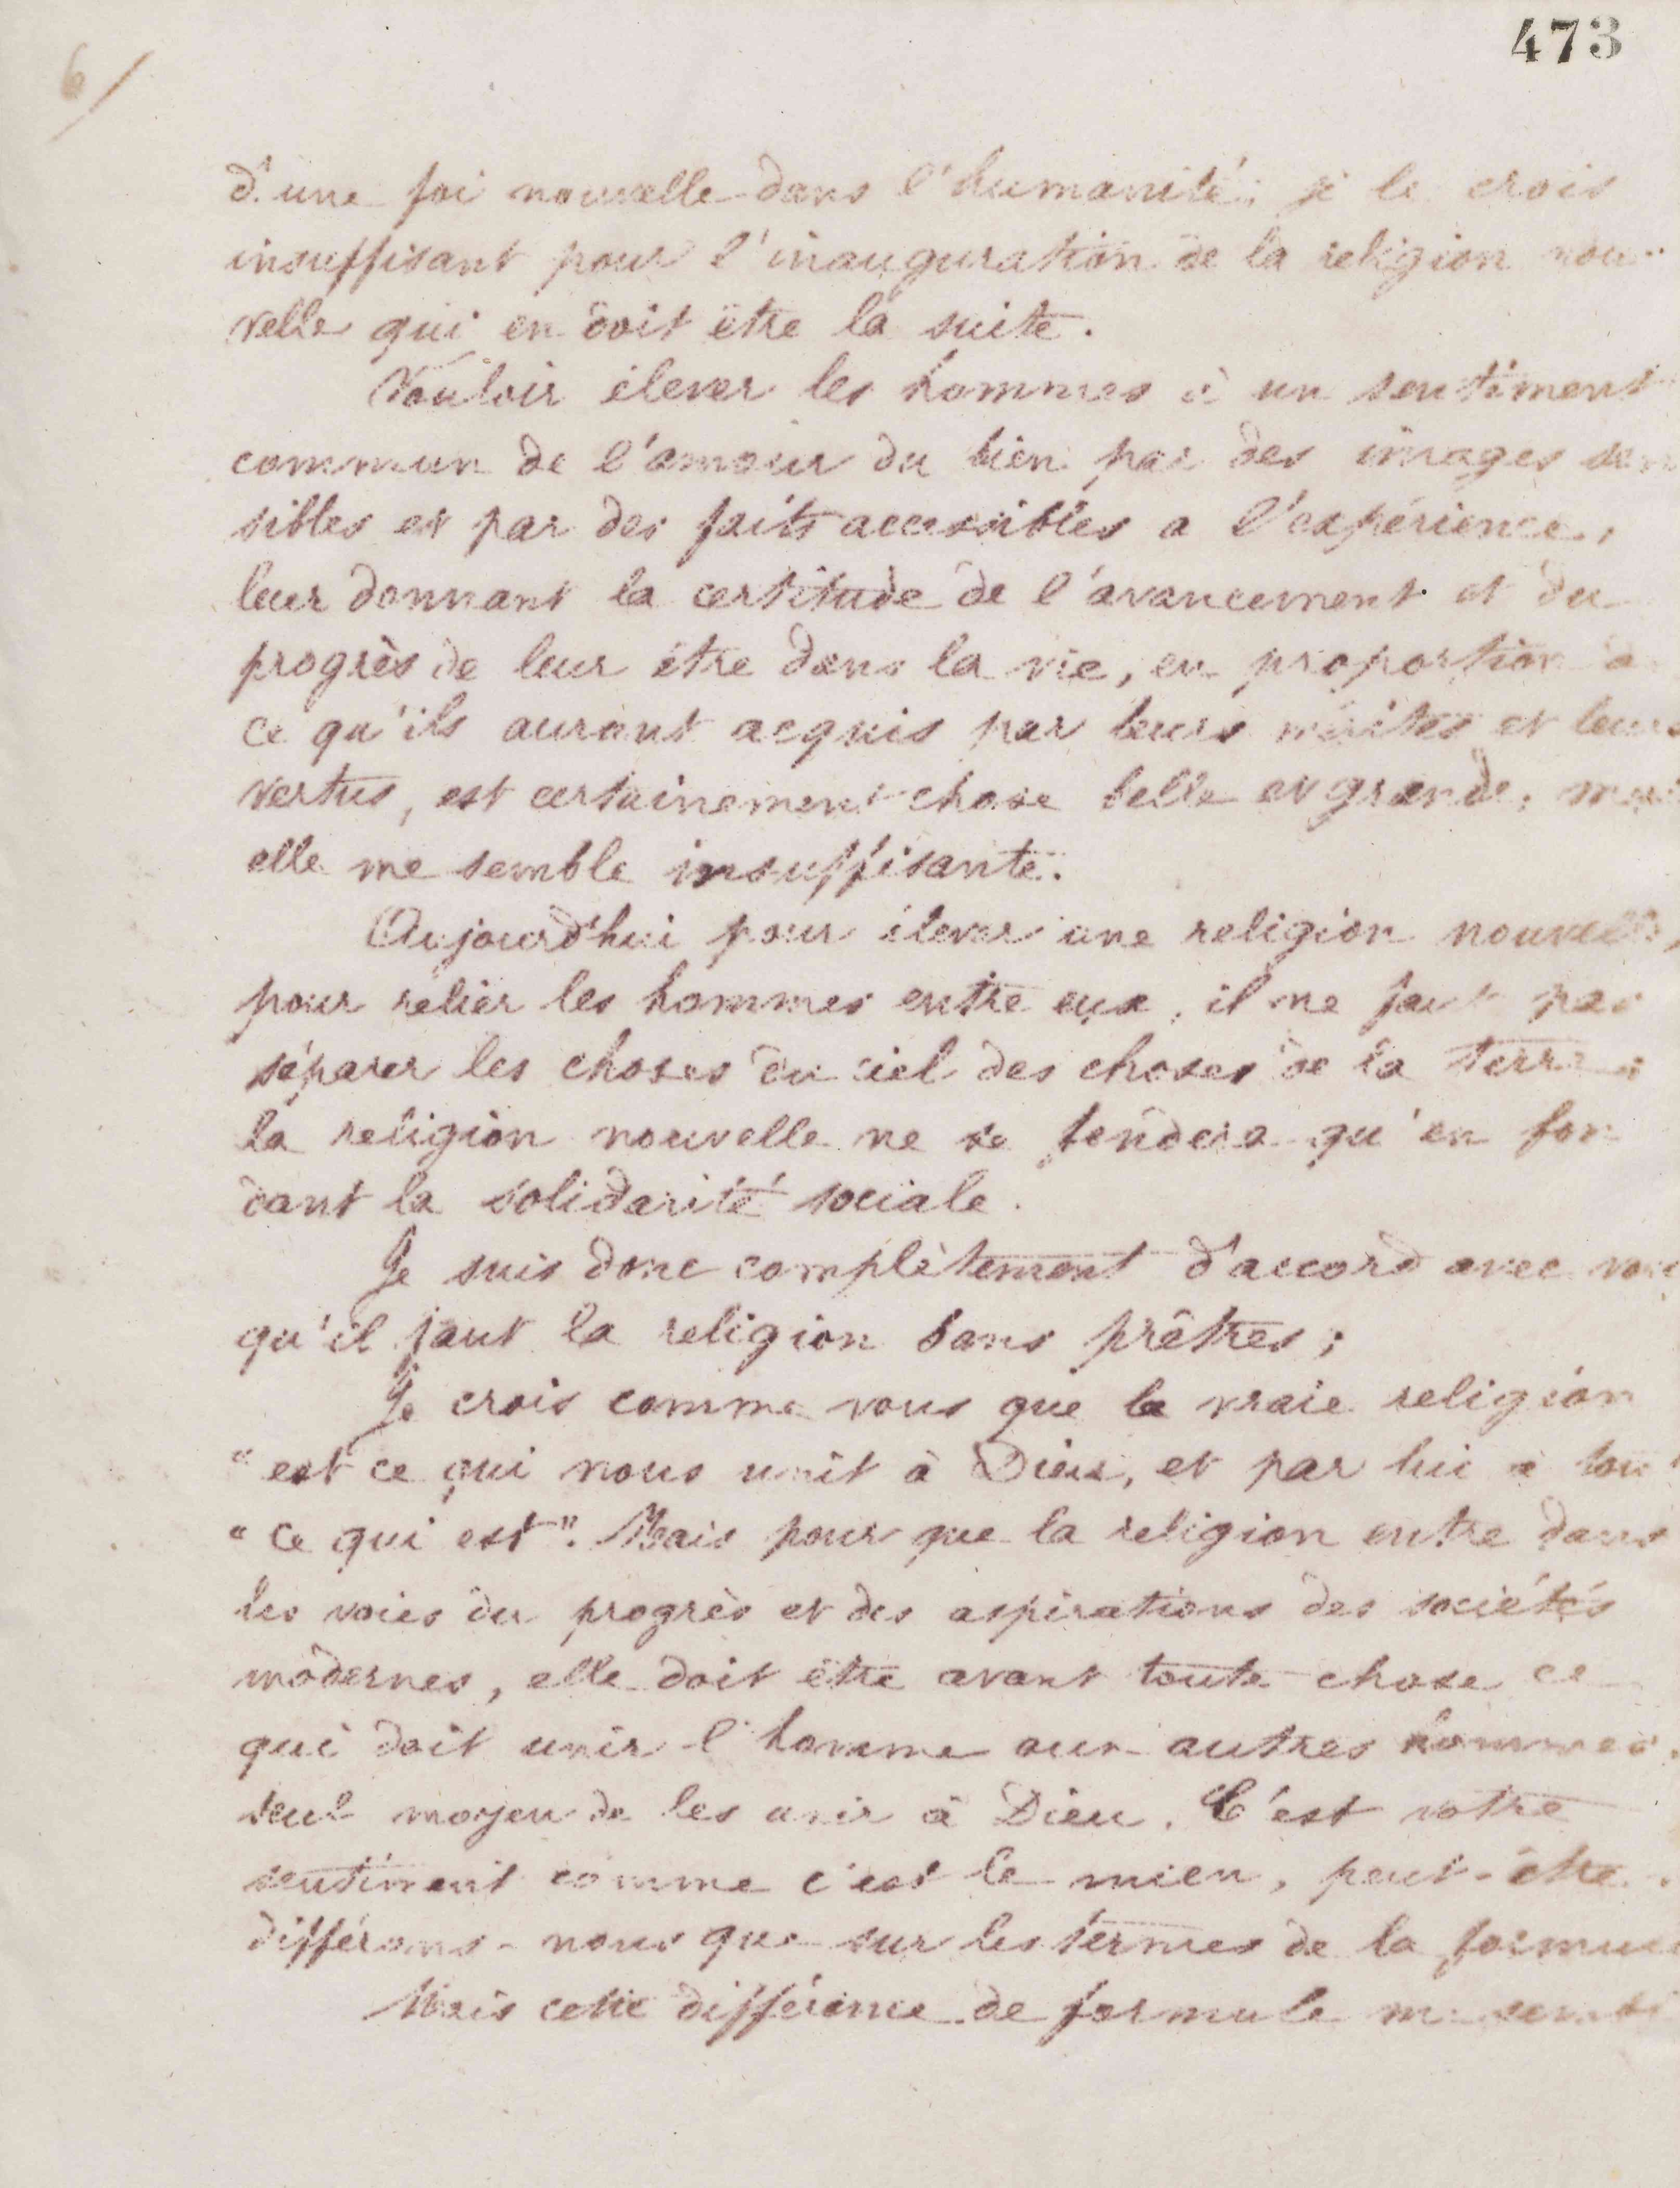 473
6/
d'une foi nouvelle dans l'humanité; je le crois
insuffisant pour l'inauguration de la religion nou-
velle qui en doit être la suite.
Vouloir élever les hommes à un sentiment
commun de l'amour du bien par des images sen
sibles et par des faits accessibles a l'expérience,
leur donnant la certitude de l'avancement et du
progrès de leur être dans la vie, en proportion à
ce qu'ils auront acquis par leurs mérites et leurs
vertus, est certainement chose belle et grande, mais
elle me semble insuffisante.
Aujourd'hui pour élever une religion nouvelle,
pour relier les hommes entre eux, il ne faut pas
séparer les choses du ciel des choses de la terre;
la religion nouvelle ne se fondera qu'en fon
dant la solidarité sociale.
Je suis donc complètement d'accord avec vous
qu'il faut la religion sans prêtres;
Je crois comme vous que la vraie religion
"est ce qui nous unit à Dieu, et par lui à tout
"ce qui est". Mais pour que la religion entre dans
les voies du progrès et des aspirations des sociétés
modernes, elle doit être avant toute chose ce
qui doit unir l'homme aux autres hommes,
seul moyen de les unir à Dieu. C'est votre
sentiment comme c'est le mien, peut-être
différons-nous que sur les termes de la formule
Mais cette différence de formule me semble